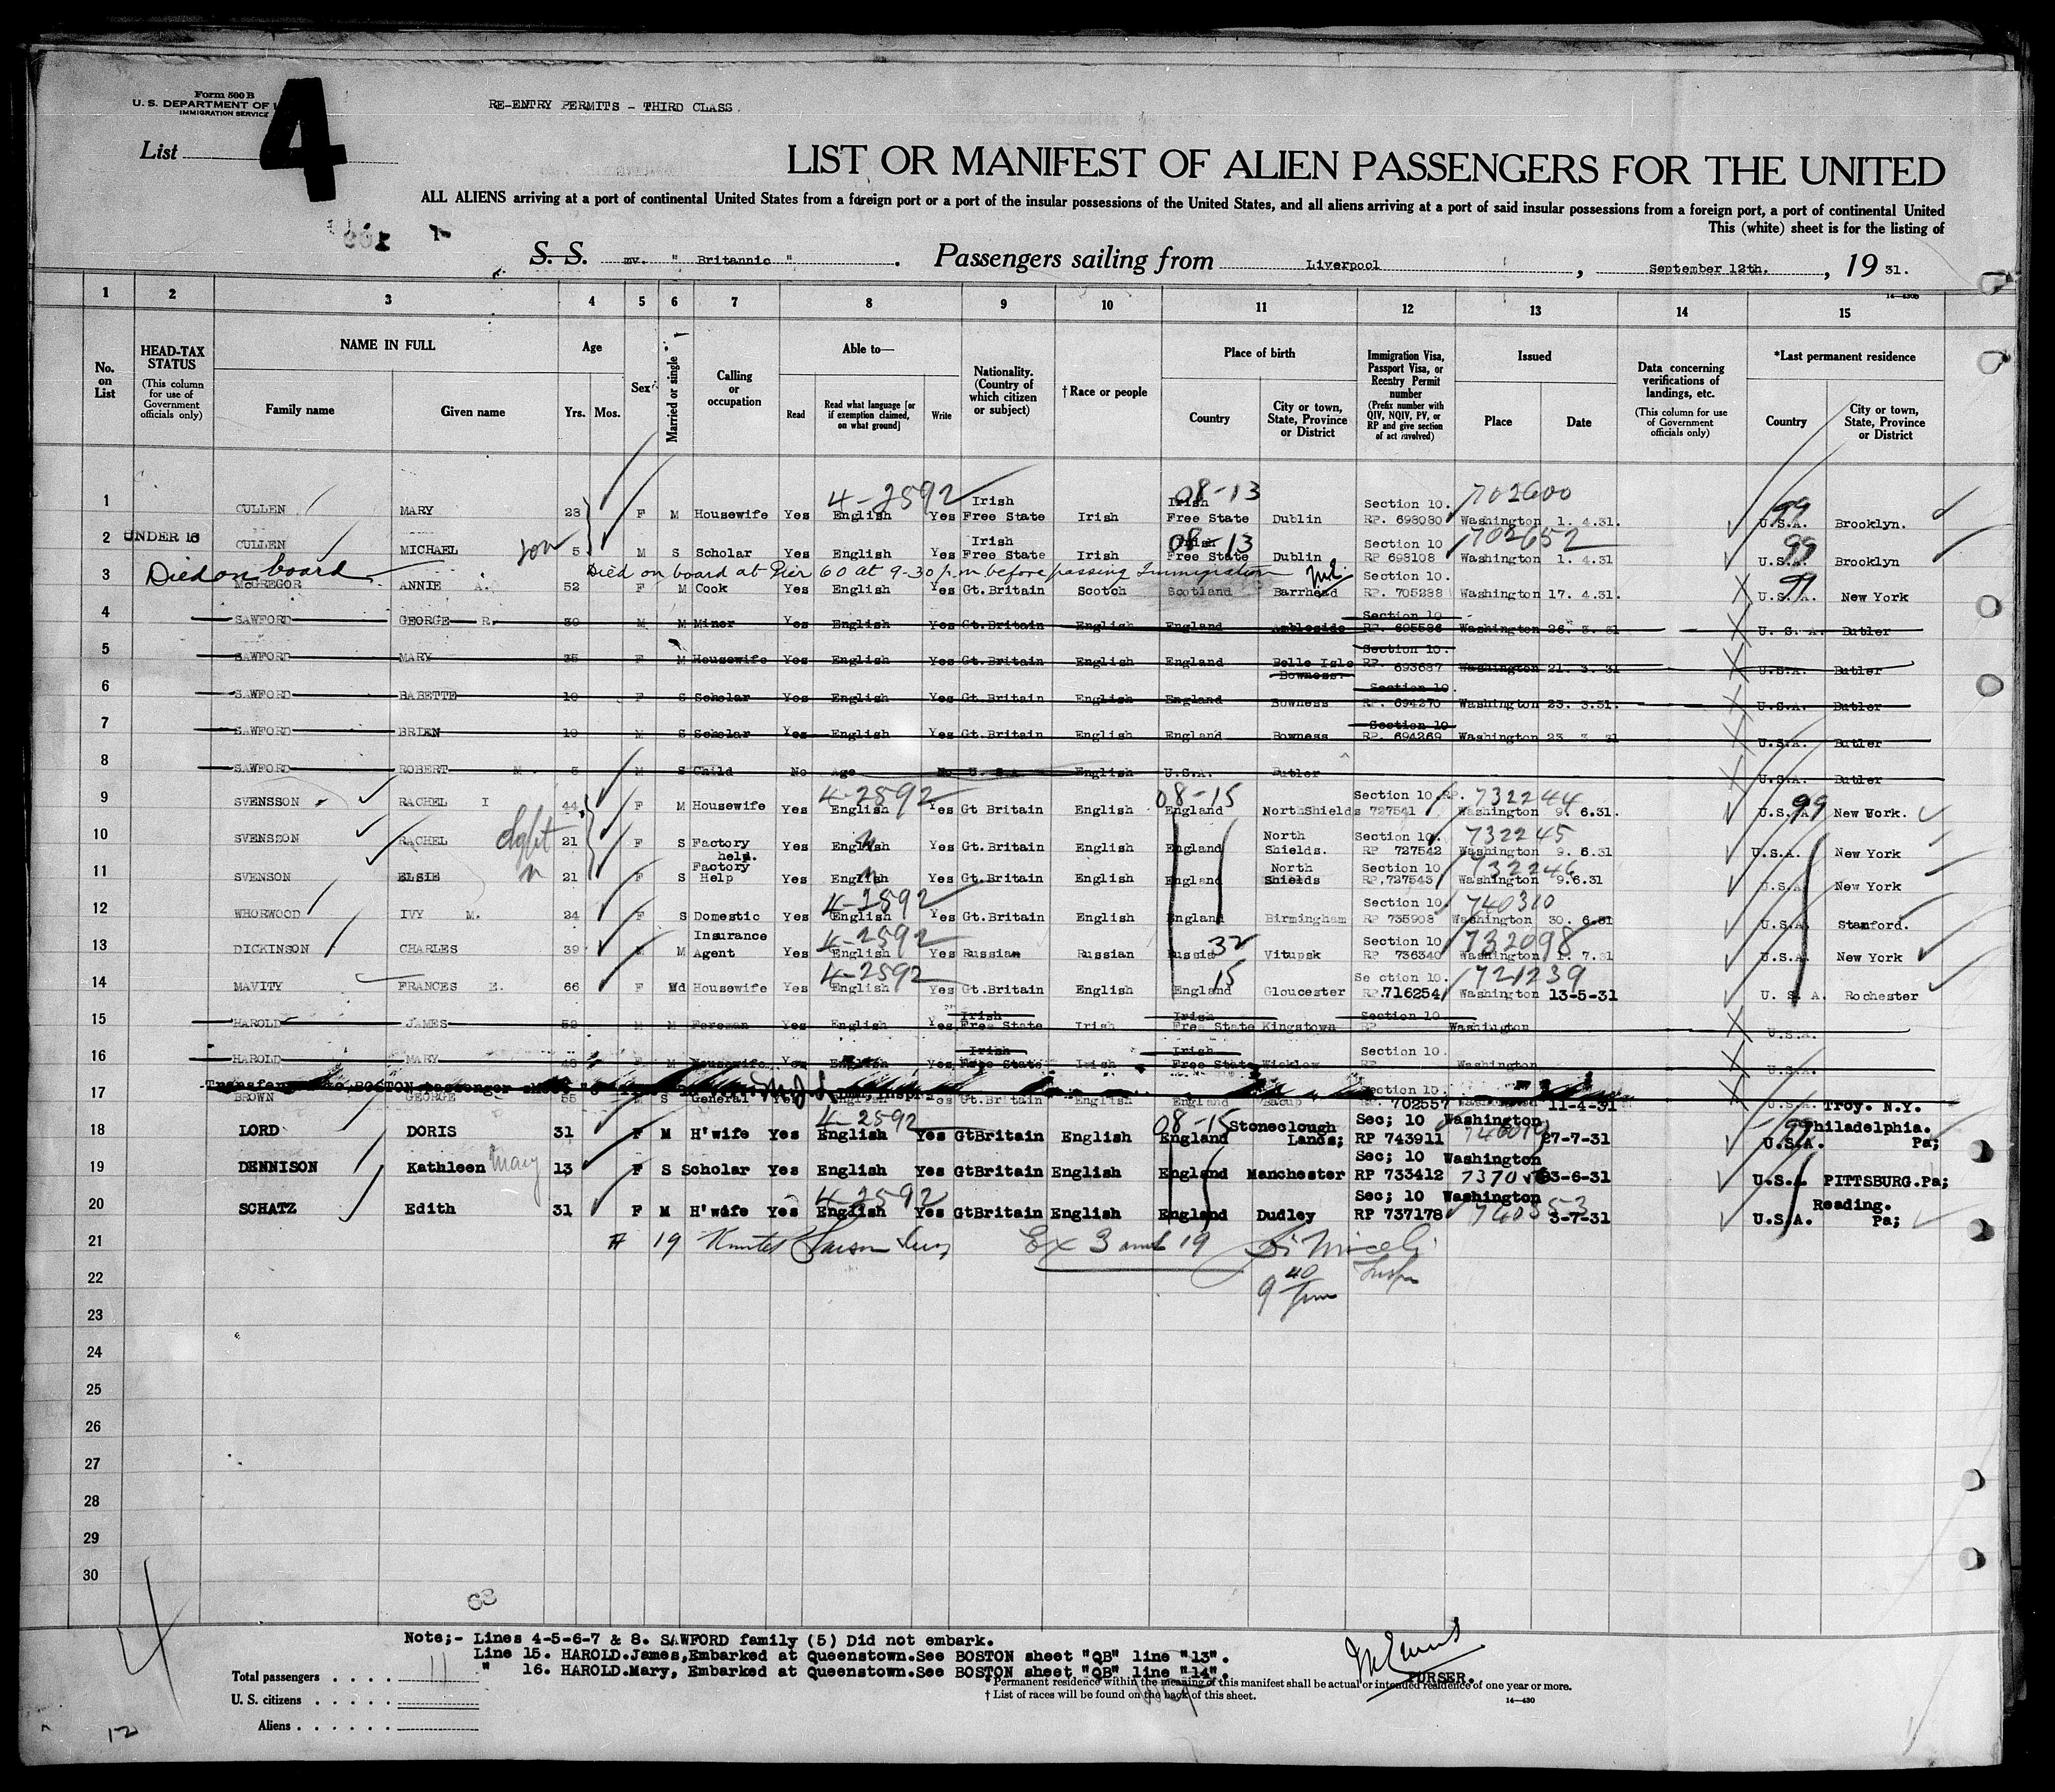 Form 500 B
U. S. DEPARTMENT OF
IMMIGRATION SERVICE
RE-ENTRY PERMITS - THIRD CLASS.
List 4
LIST OR MANIFEST OF ALIEN PASSENGERS FOR THE UNITED
ALL ALIENS arriving at a port of continental United States from a foreign port or a port of the insular possessions of the United States, and all aliens arriving at a port of said insular possessions from a foreign port, a port of continental United
This (white) sheet is for the listing of
S. S. mv. " Britannic " . Passengers sailing from Liverpool , September 12th. , 19 31.
1 2 3 4 5 6 7 8 9 10 11 12 13 14 15
No. on List
HEAD-TAX STATUS (This column for use of Government officials only)
NAME IN FULL Family name Given name
Age Yrs. Mos.
Sex
Married or single
Calling or occupation
Able to— Read Read what language [or if exemption claimed, on what ground] Write
Nationality. (Country of which citizen or subject)
† Race or people
Place of birth Country City or town, State, Province or District
Immigration Visa, Passport Visa, or Reentry Permit number (Prefix number with QIV, NQIV, PV, or RP and give section of act involved)
Issued Place Date
Data concerning verifications of landings, etc. (This column for use of Government officials only)
*Last permanent residence Country City or town, State, Province or District
4-2592 08-13 702600 99
1 CULLEN MARY 28 F M Housewife Yes English Yes Irish Free State Irish Irish Free State Dublin Section 10. RP. 698080 Washington 1. 4.31. U.S.A. Brooklyn.
08-13 702652 99
2 UNDER 16 CULLEN MICHAEL son 5 M S Scholar Yes English Yes Irish Free State Irish Irish Free State Dublin Section 10 RP 698108 Washington 1. 4.31 U.S.A. Brooklyn
Died on board Died on board at Pier 60 at 9-30 p.m before passing Immigration
3 McGREGOR ANNIE A. 52 F M Cook Yes English Yes Gt.Britain Scotch Scotland Barrhead Section 10. RP. 705288 Washington 17. 4.31. U.S.A. New York 99
4 SAWFORD GEORGE R. 39 M M Miner Yes English Yes Gt.Britain English England Ambleside Section 10 RP. 695586 Washington 26. 3. 31 U. S. A. Butler
5 SAWFORD MARY 35 F M Housewife Yes English Yes Gt.Britain English England Belle Isle Bowness. Section 10. RP. 693687 Washington 21. 3. 31 U.S.A. Butler
6 SAWFORD BABETTE 10 F S Scholar Yes English Yes Gt.Britain English England Bowness Section 10. RP. 694270 Washington 23. 3.31. U.S.A. Butler
7 SAWFORD BRIEN 10 M S Scholar Yes English Yes Gt.Britain English England Bowness Section 10 RP. 694269 Washington 23 3 31 U.S.A. Butler
8 SAWFORD ROBERT M. 5 M S Child No Age No U. S.A English U.S.A. Butler U.S.A. Butler
4-2592 08-15 732244 99
9 SVENSSON RACHEL I 44 F M Housewife Yes English Yes Gt Britain English England NorthShields Section 10.RP. 727541 Washington 9. 6.31. U.S.A. New York.
732245
10 SVENSSON RACHEL 21 F S Factory help. Yes English Yes Gt.Britain English England North Shields. Section 10. RP 727542 Washington 9. 6.31 U.S.A. New York
732246
11 SVENSON ELSIE 21 F S Factory Help Yes English Yes Gt.Britain English England North Shields Section 10 RP.727543 Washington 9.6.31 U.S.A. New York
4-2592 740310
12 WHORWOOD IVY M. 24 F S Domestic Yes English Yes Gt.Britain English England Birmingham Section 10 RP 735908 Washington 30. 6.31 U.S.A. Stamford.
4-2592 32 732098
13 DICKINSON CHARLES 39 M M Insurance Agent Yes English Yes Russian Russian Russia Vitupsk Section 10 RP 736340 Washington 1. 7.31 U.S.A. New York
4-2592 15 721239
14 MAVITY FRANCES E. 66 F Wd Housewife Yes English Yes Gt.Britain English England Gloucester Section 10. RP.716254 Washington 13-5-31 U. S. A. Rochester
15 HAROLD JAMES 52 M M Foreman Yes English Yes Irish Free State Irish Irish Free State Kingstown Section 10 RP Washington U.S.A.
16 HAROLD MARY 48 F M Housewife Yes English Yes Irish Free State Irish Irish Free State Wicklow Section 10. RP Washington U.S.A.
17 BROWN GEORGE 55 M S General Yes English Yes Gt.Britain English England Bacup Section 10. RP. 702557 Washington 11-4-31 U.S.A. Troy. N.Y.
4-2592 08-15 99
18 LORD DORIS 31 F M H'wife Yes English Yes GtBritain English England Stoneclough Lancs; Sec; 10 RP 743911 Washington 27-7-31 U.S.A. Philadelphia. Pa;
19 DENNISON Kathleen Mary 13 F S Scholar Yes English Yes GtBritain English England Manchester Sec; 10 RP 733412 Washington 23-6-31 U.S.A PITTSBURG.Pa;
4-2592 740353
20 SCHATZ Edith 31 F M H'wife Yes English Yes GtBritain English England Dudley Sec; 10 RP 737178 Washington 3-7-31 U.S.A. Reading. Pa;
21 # 19 Ex 3 and 19
22 9 40
23
24
25
26
27
28
29
30
63
Note;- Lines 4-5-6-7 & 8. SAWFORD family (5) Did not embark.
Line 15. HAROLD.James,Embarked at Queenstown.See BOSTON sheet "QB" line "13".
" 16. HAROLD.Mary, Embarked at Queenstown.See BOSTON sheet "QB" line "14".
PURSER.
Total passengers . . . . 11
U. S. citizens . . . . .
Aliens . . . . . .
* Permanent residence within the meaning of this manifest shall be actual or intended residence of one year or more.
† List of races will be found on the back of this sheet.
14—430
12